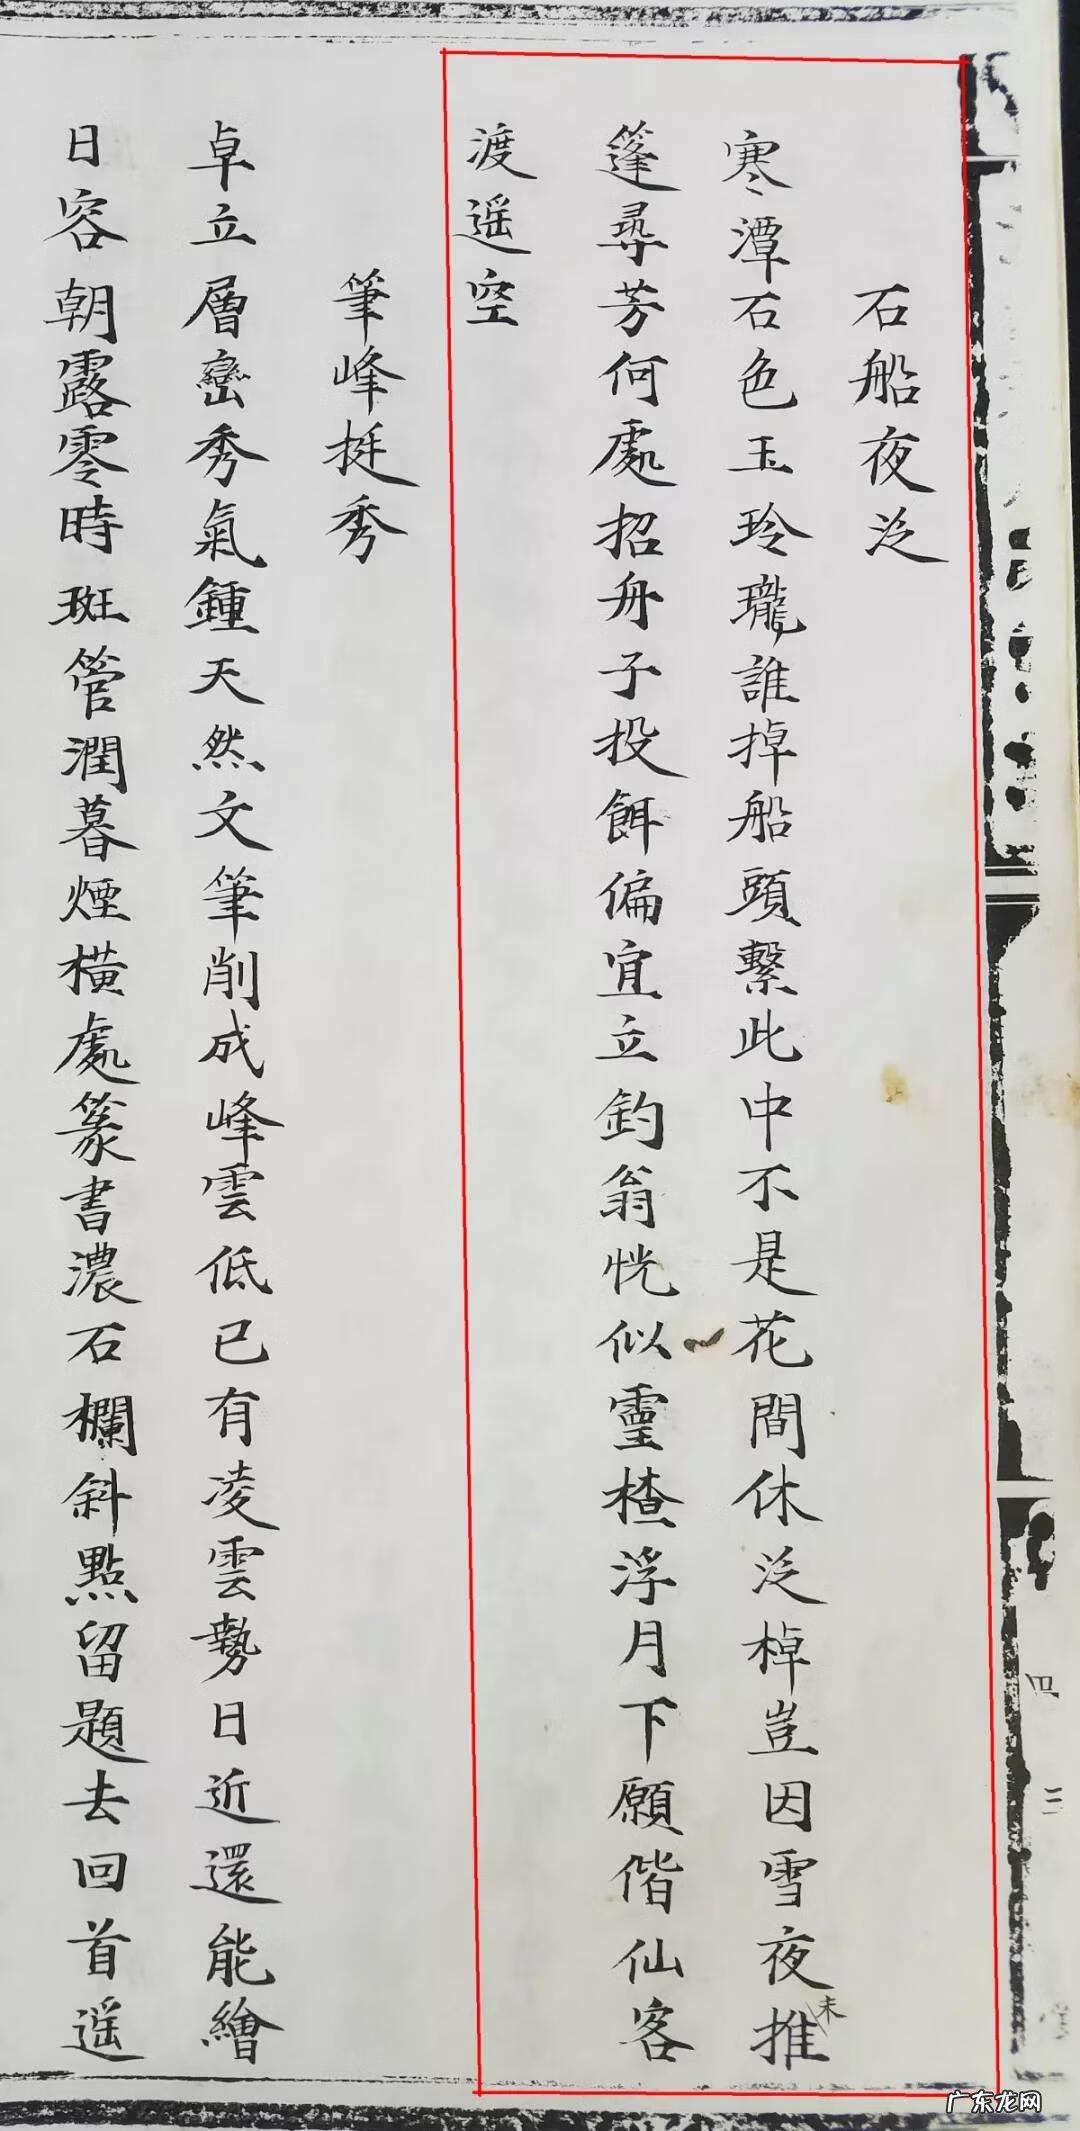 石船夜泛
寒潭石色玉玲瓏誰掉船頭繫此中不是花間休泛棹豈因雪夜推
未
篷尋芳何處招舟子投餌偏宜立釣翁恍似靈楂浮月下願偕仙客
渡遥空
筆峰挺秀
卓立層巒秀氣鍾天然文筆削成峰雲低已有凌雲勢日近還能繪
日容朝露零時斑管潤暮煙橫處篆書濃石欄斜點留題去回首遥
四
三
广东龙网